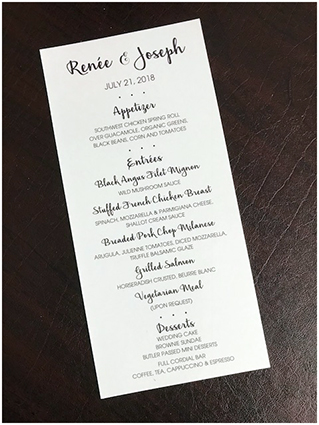 Renée & Joseph
JULY 21, 2018
Appetizer
SOUTHWEST CHICKEN SPRING ROLL,
OVER GUACAMOLE, ORGANIC GREENS,
BLACK BEANS, CORN AND TOMATOES
Entrées
Black Angus Filet Mignon
WILD MUSHROOM SAUCE
Stuffed French Chicken Breast
SPINACH, MOZZARELLA & PARMIGIANA CHEESE,
SHALLOT CREAM SAUCE
Breaded Pork Chop Milanese
ARUGULA, JULIENNE TOMATOES, DICED MOZZARELLA,
TRUFFLE BALSAMIC GLAZE
Grilled Salmon
HORSERADISH CRUSTED, BEURRE BLANC
Vegetarian Meal
(UPON REQUEST)
Desserts
WEDDING CAKE
BROWNIE SUNDAE
BUTLER PASSED MINI DESSERTS
FULL CORDIAL BAR
COFFEE, TEA, CAPPUCCINO & ESPRESSO